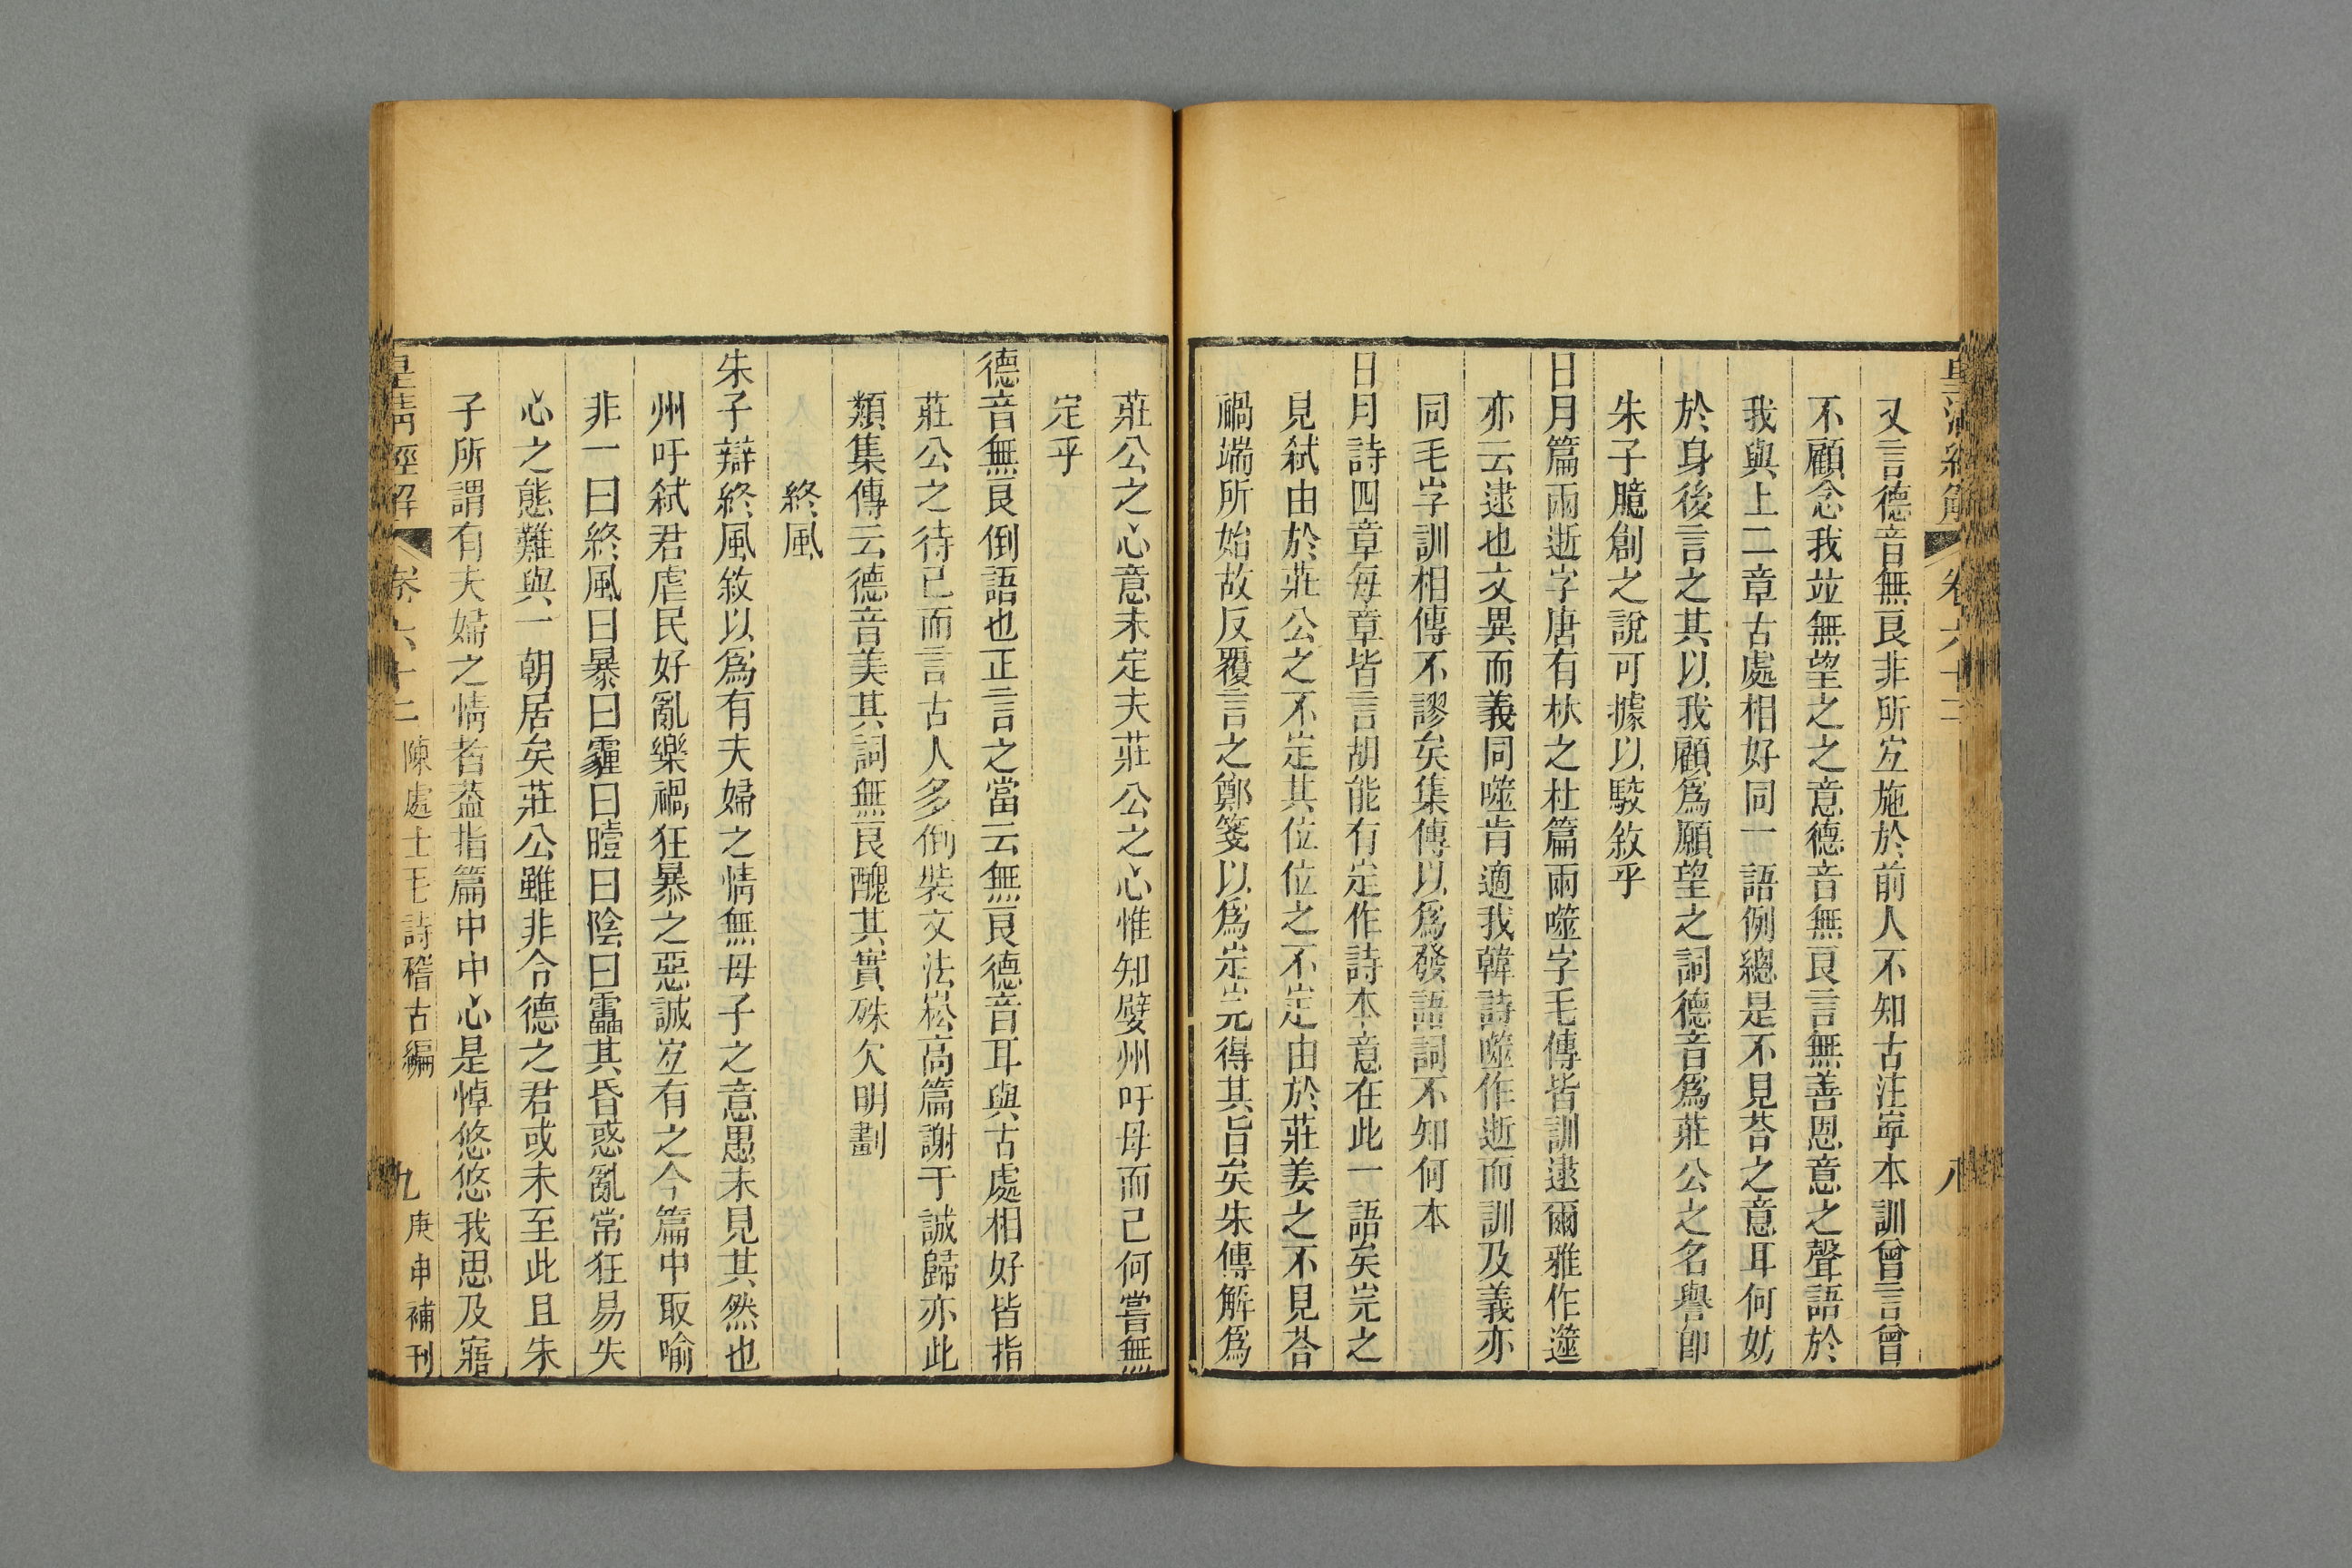 皇清經解 卷六十二 八
又言德音無良非所宐施於前人不知古注寧本訓曾言曾
不顧念我竝無望之之意德音無良言無善恩意之聲語於
我與上二章古處相好同一語例總是不見荅之意耳何妨
於身後言之其以我顧爲願望之詞德音爲莊公之名譽卽
朱子臆創之說可據以駮敘乎
日月篇兩逝字唐有杕之杜篇兩噬字毛傳皆訓逮爾雅作遾
亦云逮也文異而義同噬肯適我韓詩噬作逝而訓及義亦
同毛字訓相傳不謬矣集傳以爲發語詞不知何本
日月詩四章每章皆言胡能有定作詩本意在此一語矣完之
見弒由於莊公之不定其位位之不定由於莊姜之不見荅
禍端所始故反覆言之鄭箋以爲定完得其旨矣朱傳解爲
莊公之心意未定夫莊公之心惟知嬖州吁母而已何嘗無
定乎
德音無良倒語也正言之當云無良德音耳與古處相好皆指
莊公之待已而言古人多倒裝文法崧高篇謝于誠歸亦此
類集傳云德音美其詞無良醜其實殊欠明劃
終風
朱子辯終風敘以爲有夫婦之情無母子之意愚未見其然也
州吁弒君虐民好亂樂禍狂暴之惡誠宐有之今篇中取喻
非一曰終風曰暴曰霾曰曀曰陰曰靁其昏惑亂常狂易失
心之態難與一朝居矣莊公雖非令德之君或未至此且朱
子所謂有夫婦之情者葢指篇中中心是悼悠悠我思及寤
皇清經解 卷六十二 陳處士毛詩稽古編 九 庚申補刊